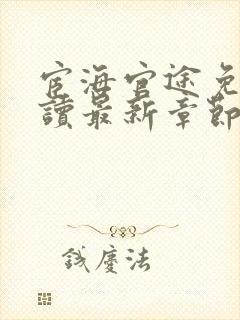 宦海官途免
讀最新章節
鉞慶法